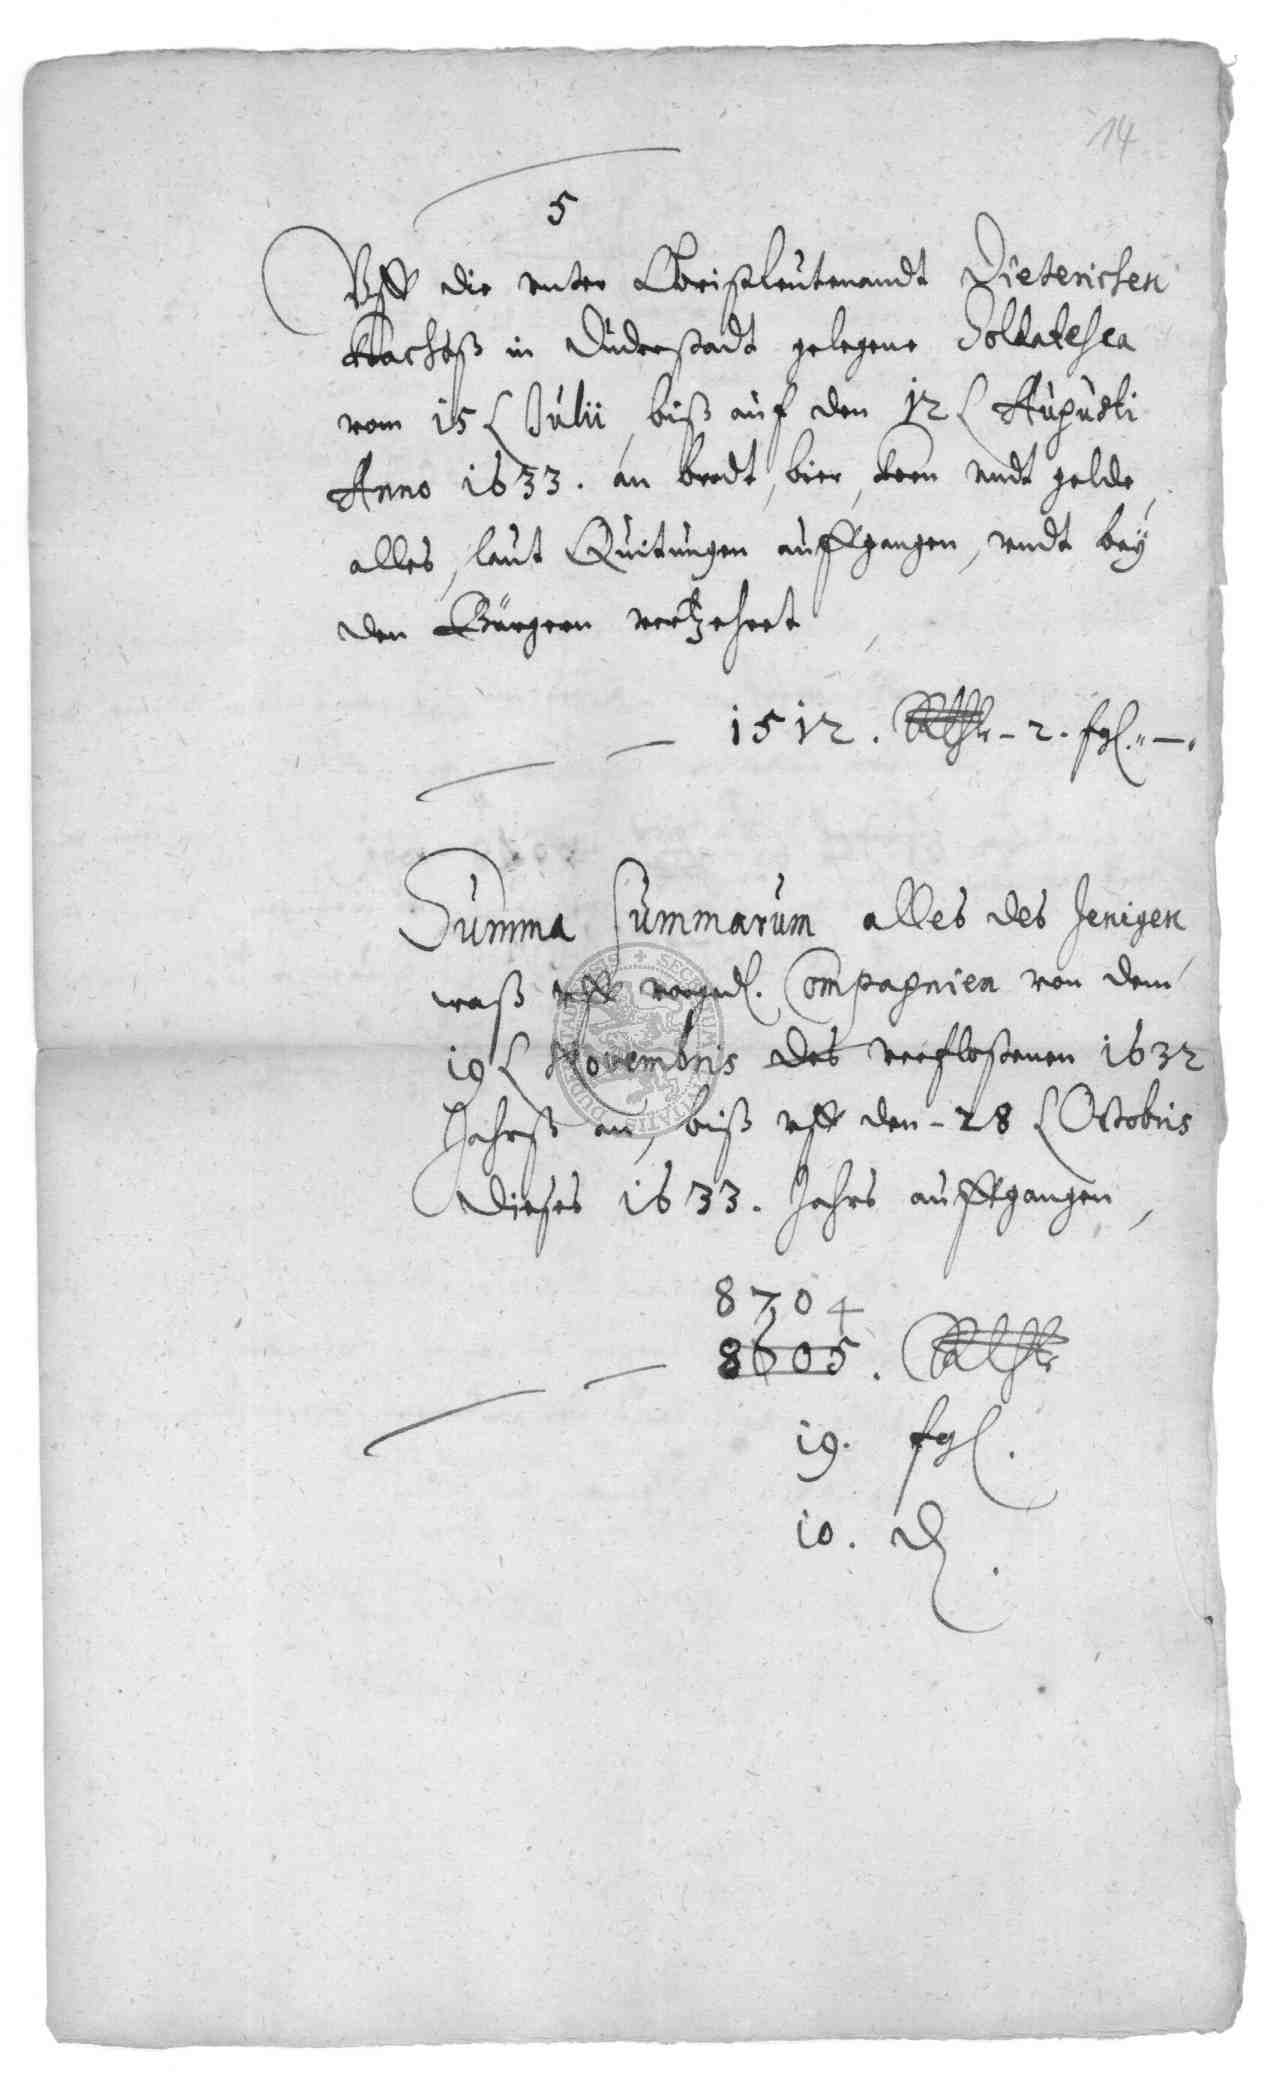 14
5
Vff die vnter Obristleutenandt Dieterichen
in Duderstadt gelegene Soldatesca
vom 15 Julii, biß auf den 12 Augusti
Anno 1633. an brodt, bier, korn vndt gelde,
alles, laut Quitungen auffgangen, vndt bey
den Bürgern vertzehret
1512. Rthlr - 2. fgl. -
Summa Summarum alles des Jenigen
waß vff vorged. Compagnien von dem
19 Novembris des verfloßenen 1632
Jahrß an, biß vff den - 28 Octobris
dieses 1633. Jahrs auffgangen,
8704
8605. Rthlr
19. fgl.
10. d.